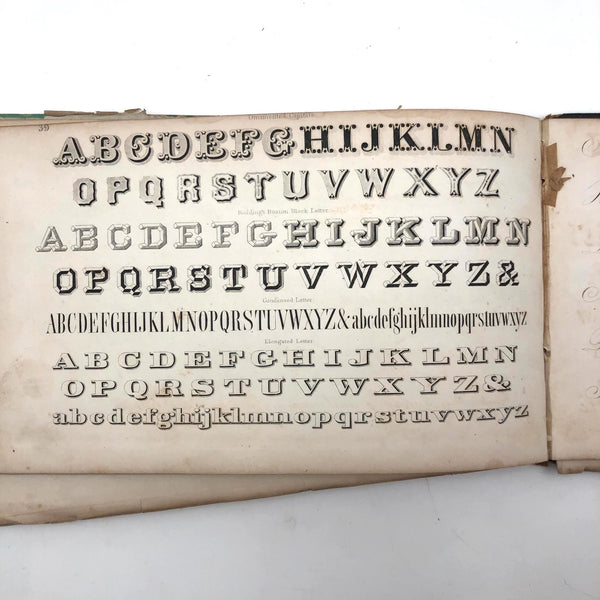 39
Ornamented Capitals.
ABCDEFGHIJKLMN
OPQRSTUVWXYZ
Block Letter.
ABCDEFGHIJKLMN
OPQRSTUVWXYZ&
Condensed Letter.
ABCDEFGHIJKLMNOPQRSTUVWXYZ&abcdefghijklmnopqrstuvwxyz
Elongated Letter.
ABCDEFGHIJKLMN
OPQRSTUVWXYZ&
abcdefghijklmnopqrstuvwxyz